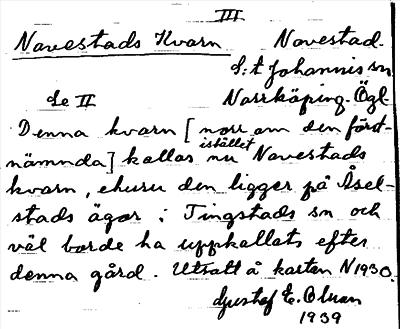 III
Navestads Kvarn Navestad.
S:t Johannis sn
Se II Norrköping. Ögl.
Denna kvarn [norr om den först-
istället
nämnda] kallas nu Navestads
kvarn, ehuru den ligger på Åsel-
stads ägor i Tingstads sn och
väl borde ha uppkallats efter
denna gård. Utsatt å kartan N1930.
Gustaf E. Olsson
1939